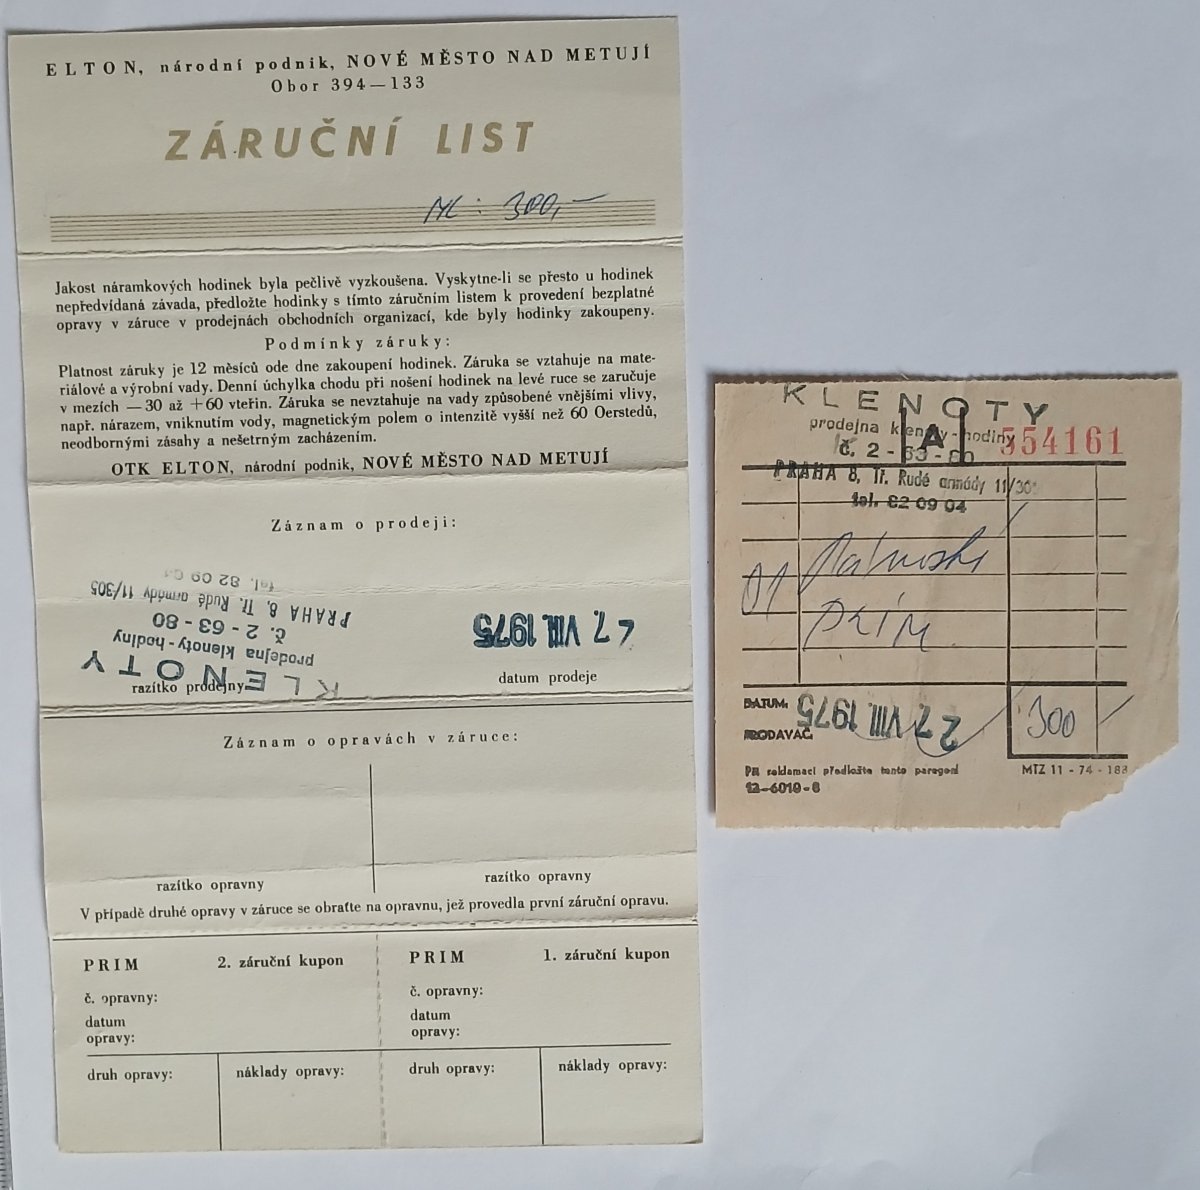 ELTON, národní podnik, NOVÉ MĚSTO NAD METUJÍ
Obor 394—133
ZÁRUČNÍ LIST
MC: 300,—
Jakost náramkových hodinek byla pečlivě vyzkoušena. Vyskytne-li se přesto u hodinek
nepředvídaná závada, předložte hodinky s tímto záručním listem k provedení bezplatné
opravy v záruce v prodejnách obchodních organizací, kde byly hodinky zakoupeny.
Podmínky záruky:
Platnost záruky je 12 měsíců ode dne zakoupení hodinek. Záruka se vztahuje na mate-
riálové a výrobní vady. Denní úchylka chodu při nošení hodinek na levé ruce se zaručuje
v mezích —30 až +60 vteřin. Záruka se nevztahuje na vady způsobené vnějšími vlivy,
např. nárazem, vniknutím vody, magnetickým polem o intenzitě vyšší než 60 Oerstedů,
neodbornými zásahy a nešetrným zacházením.
OTK ELTON, národní podnik, NOVÉ MĚSTO NAD METUJÍ
Záznam o prodeji:
KLENOTY
prodejna klenoty-hodiny
č. 2 - 63 - 80
PRAHA 8, Tř. Rudé armády 11/305
tel. 82 09
27. VIII. 1975
razítko prodejny
datum prodeje
Záznam o opravách v záruce:
razítko opravny
razítko opravny
V případě druhé opravy v záruce se obraťte na opravnu, jež provedla první záruční opravu.
PRIM 2. záruční kupon
č. opravny:
datum
opravy:
druh opravy: náklady opravy:
PRIM 1. záruční kupon
č. opravny:
datum
opravy:
druh opravy: náklady opravy:
KLENOTY
prodejna klenoty-hodiny
A
554161
č. 2 - 63 - 80
PRAHA 8, Tř. Rudé armády 11/305
tel. 82 09 04
PRIM
DATUM: 27. VIII. 1975
300
PRODAVAČ:
Při reklamaci předložte tento paragon!
MTZ 11 - 74 - 188
12-6019-6